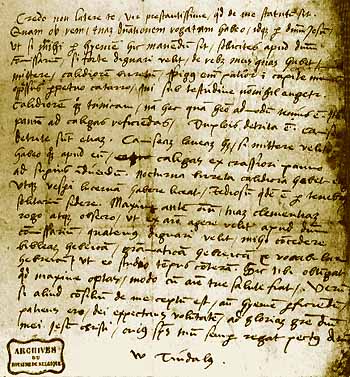 Credo non latere te vir prestantissime, qd de me statutū sit.
Quam ob rem, tuā dnationem rogatum habeo, idqz p dnm Jesū
ut si michi p hyemē hic manendū sit, solicites apud dnm
comissariū, si forte dignari velit, de rebz meis quas habet
mittere, calidiorē biretū, frigg enī patior ī capite nimiū
oppssus ppetuo catarro, qui sub testitudine nonnihil augetr.
Calidiorē qz tunicam, na hec quā heo admodū tenuis ē. Itē
pannū ad caligas reficiendas. Duplois detrita ē. camisee
detrite sūt etiā. Camiseā laneā hz, si mittere velit.
habeo qz apud eū caligas ex crassiori panno
ad supius induendū. Nocturna bireta calidiora habet etiā
vtqz vespi lucernā habere liceat. Tediosū qdē ē p tenebras
solitarie sedere. Maxime autē oīm, tuā clementiā
rogo atqz obsecro, ut ex aīo agere velit apud dnm
comissariū, quatenus dignari velit, mihi cōcedere
bibleā hebreicā, gramaticā hebreicā & vocabulariū
hebreicū, ut eo studio tēpus conterā. Sic tibi obtingat
qd maxime optas, modo cū aīe tue salute fiat. Verū
si aliud cōsiliū de me ceptū est, an hyemē pficiendū
patiens ero, dei expectās volūtatē, ad gloriā gre dni
mei Jesu christi, cuis sps tuū semp regat pectus
W Tindalus
ARCHIVES
DU
ROYAUME DE BELGIQUE